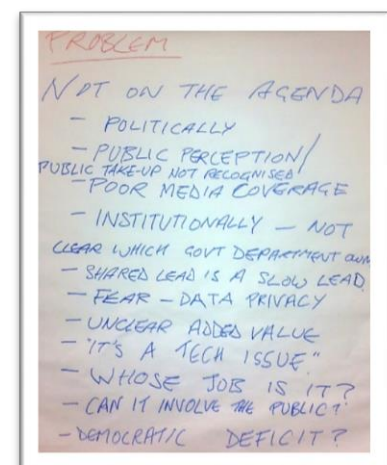 PROBLEM
NOT ON THE AGENDA
- POLITICALLY
- PUBLIC PERCEPTION/
PUBLIC TAKE-UP NOT RECOGNISED
- POOR MEDIA COVERAGE
- INSTITUTIONALLY - NOT
CLEAR WHICH GOVT DEPARTMENT OWN
- SHARED LEAD IS A SLOW LEAD
- FEAR - DATA PRIVACY
- UNCLEAR ADDED VALUE
- "IT'S A TECH ISSUE"
- WHOSE JOB IS IT?
- CAN IT INVOLVE THE PUBLIC?
- DEMOCRATIC DEFICIT?